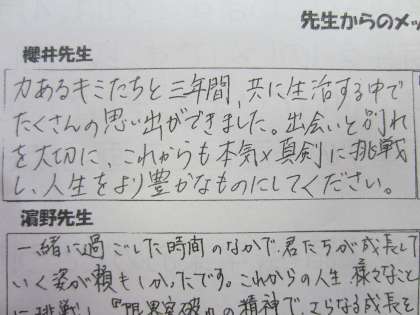 先生からのメッ
櫻井先生
力あるキミたちと三年間、共に生活する中で
たくさんの思い出ができました。出会いと別れ
を大切に、これからも本気×真剣に挑戦
し、人生をより豊かなものにしてください。
濵野先生
一緒に過ごした時間のなかで、君たちが成長して
いく姿が頼もしかったです。これからの人生、様々なこと
に挑戦し『限界突破』の精神で、さらなる成長を